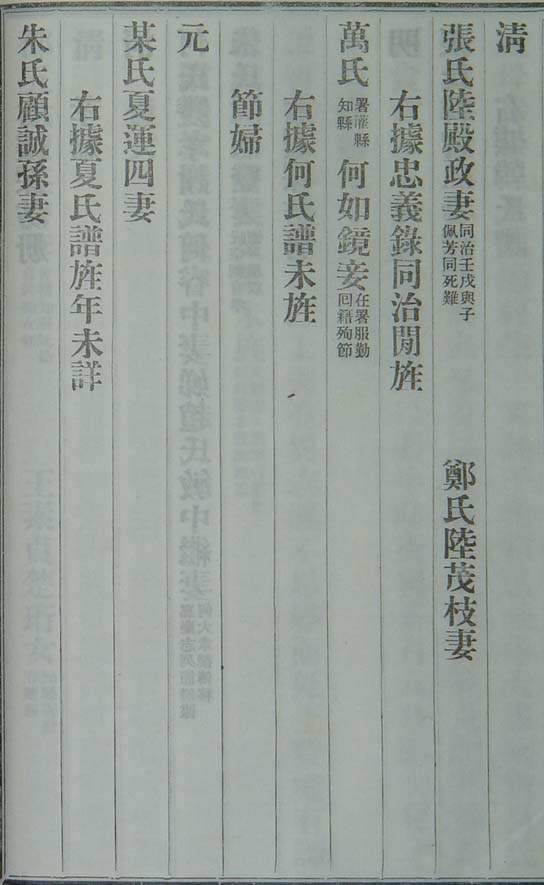 清
張氏陸殿政妻同治壬戌與子佩芳同死難 鄭氏陸茂枝妻
右據忠義錄同治閒旌
萬氏署灌縣知縣何如鏡妾在署服勤囘籍殉節
右據何氏譜未旌
節婦
元
某氏夏運四妻
右據夏氏譜旌年未詳
朱氏顧誠孫妻